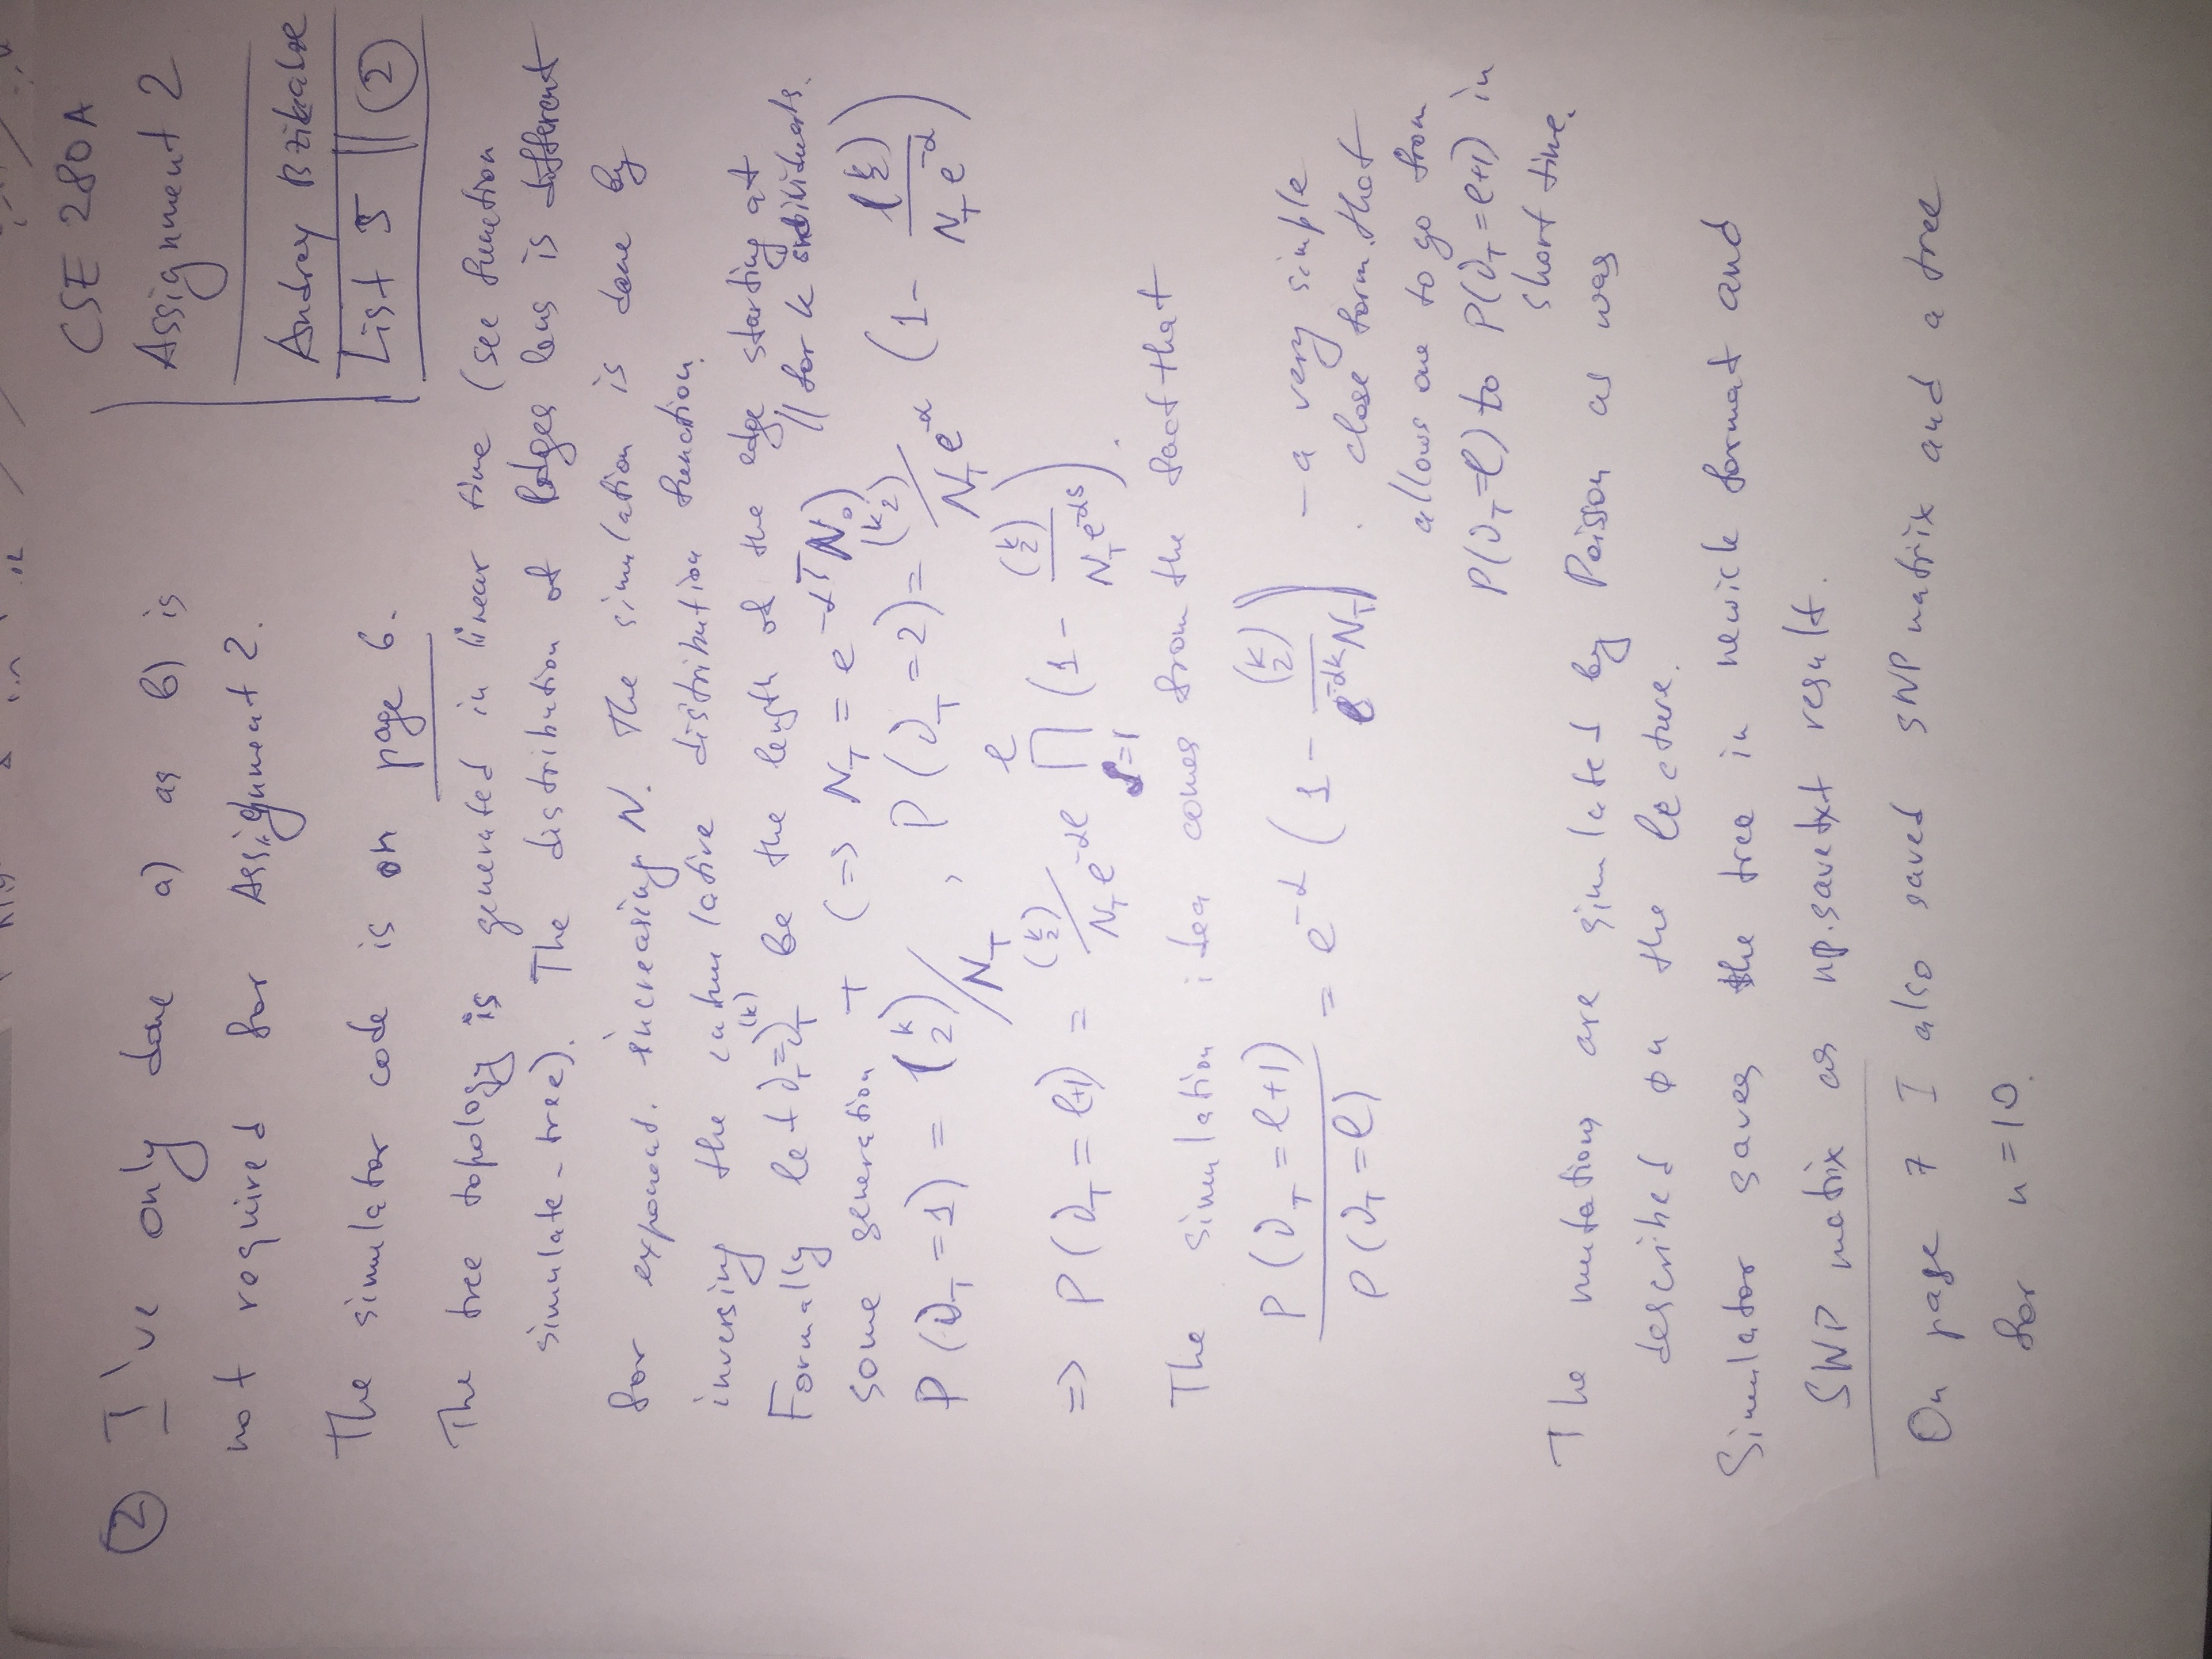 CSE 280A
Assignment 2
Andrey Bzikadze
List 5 || ②
② I've only done a) as b) is
not required for Assignment 2.
The simulator code is on page 6.
The tree topology is generated in linear time (see function
simulate-tree). The distribution of edges lens is different
for exponent. increasing N. The simulation is done by
inversing the cumulative distribution function.
Formally let ϑ_T = ϑ_T^(k) be the length of the edge starting at
some generation T (=> N_T = e^{-αT} N_0) // for k individuals.
P(ϑ_T = 1) = (k 2) / N_T , P(ϑ_T = 2) = (k 2) / N_T e^{-α} (1 - (k 2) / N_T e^{-α})
=> P(ϑ_T = l+1) = (k 2) / N_T e^{-αl} ∏_{s=1}^{l} (1 - (k 2) / N_T e^{-αs}).
The simulation idea comes from the fact that
P(ϑ_T = l+1) / P(ϑ_T = l) = e^{-α} (1 - (k 2) / e^{-αk} N_T) — a very simple
close form that
allows one to go from
P(ϑ_T = l) to P(ϑ_T = l+1) in
short time.
The mutations are simulated by Poisson as was
described on the lecture.
Simulator saves the tree in newick format and
SNP matrix as np.savetxt result.
On page 7 I also saved SNP matrix and a tree
for n = 10.